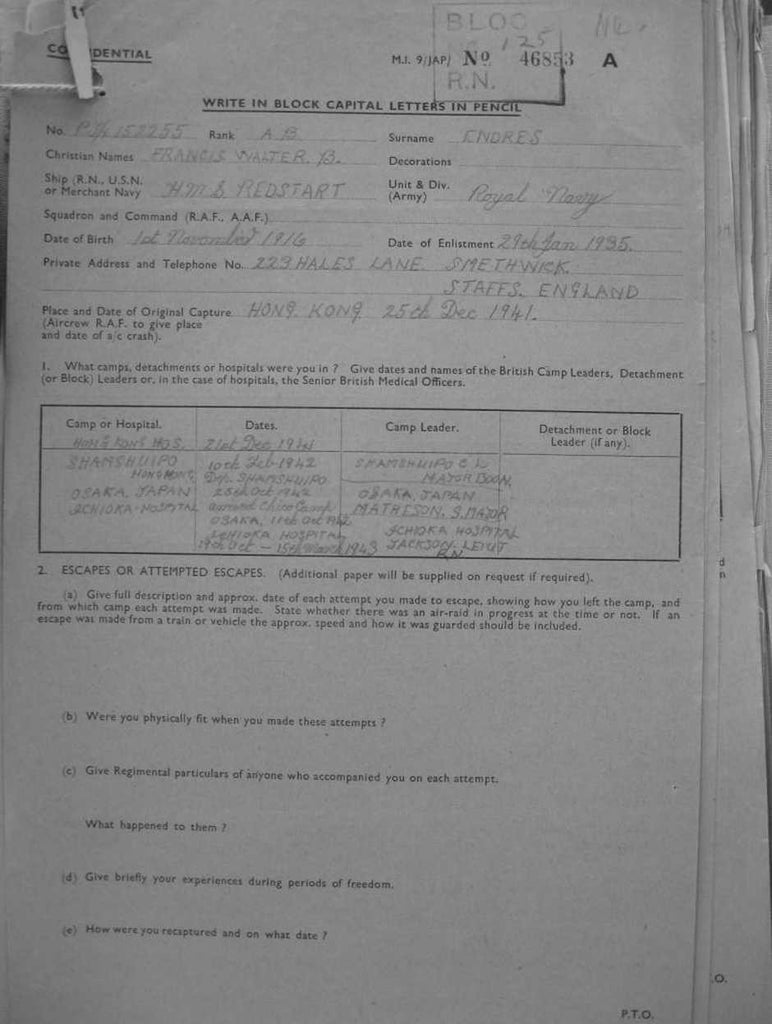 BLOC
125
CO DENTIAL
M.I. 9/JAP/ No 46853 A
R.N.
WRITE IN BLOCK CAPITAL LETTERS IN PENCIL
No. 152255 Rank A.B. Surname ENDRES
Christian Names FRANCIS WALTER. B. Decorations
Ship (R.N., U.S.N. or Merchant Navy HMS REDSTART Unit & Div. (Army) Royal Navy
Squadron and Command (R.A.F., A.A.F.)
Date of Birth 1st November 1916 Date of Enlistment 29th Jan 1935.
Private Address and Telephone No. 223 HALES LANE. SMETHWICK.
STAFFS. ENGLAND
Place and Date of Original Capture HONG KONG 25th Dec 1941.
(Aircrew R.A.F. to give place
and date of a/c crash).
1. What camps, detachments or hospitals were you in ? Give dates and names of the British Camp Leaders, Detachment
(or Block) Leaders or, in the case of hospitals, the Senior British Medical Officers.
Camp or Hospital. Dates. Camp Leader. Detachment or Block
Leader (if any).
HONG KONG HOS. 21st Dec 1941
SHAMSHUIPO 10th Feb 1942 SHAMSHUIPO
HONG KONG Dep. SHAMSHUIPO MAJOR BOON.
OSAKA, JAPAN 25th Oct 1942 OSAKA, JAPAN
ICHIOKA-HOSPITAL Camp MATHESON. S. MAJOR
OSAKA, 11th Oct 1942 ICHIOKA HOSPITAL
ICHIOKA HOSPITAL JACKSON, LEIUT
19th Oct - 15th March 1943 RN
2. ESCAPES OR ATTEMPTED ESCAPES. (Additional paper will be supplied on request if required).
(a) Give full description and approx. date of each attempt you made to escape, showing how you left the camp, and
from which camp each attempt was made. State whether there was an air-raid in progress at the time or not. If an
escape was made from a train or vehicle the approx. speed and how it was guarded should be included.
(b) Were you physically fit when you made these attempts ?
(c) Give Regimental particulars of anyone who accompanied you on each attempt.
What happened to them ?
(d) Give briefly your experiences during periods of freedom.
(e) How were you recaptured and on what date ?
P.T.O.